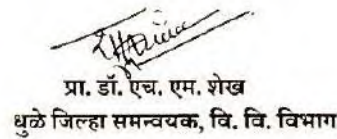 प्रा. डॉ. एच. एम. शेख
धुळे जिल्हा समन्वयक, वि. वि. विभाग